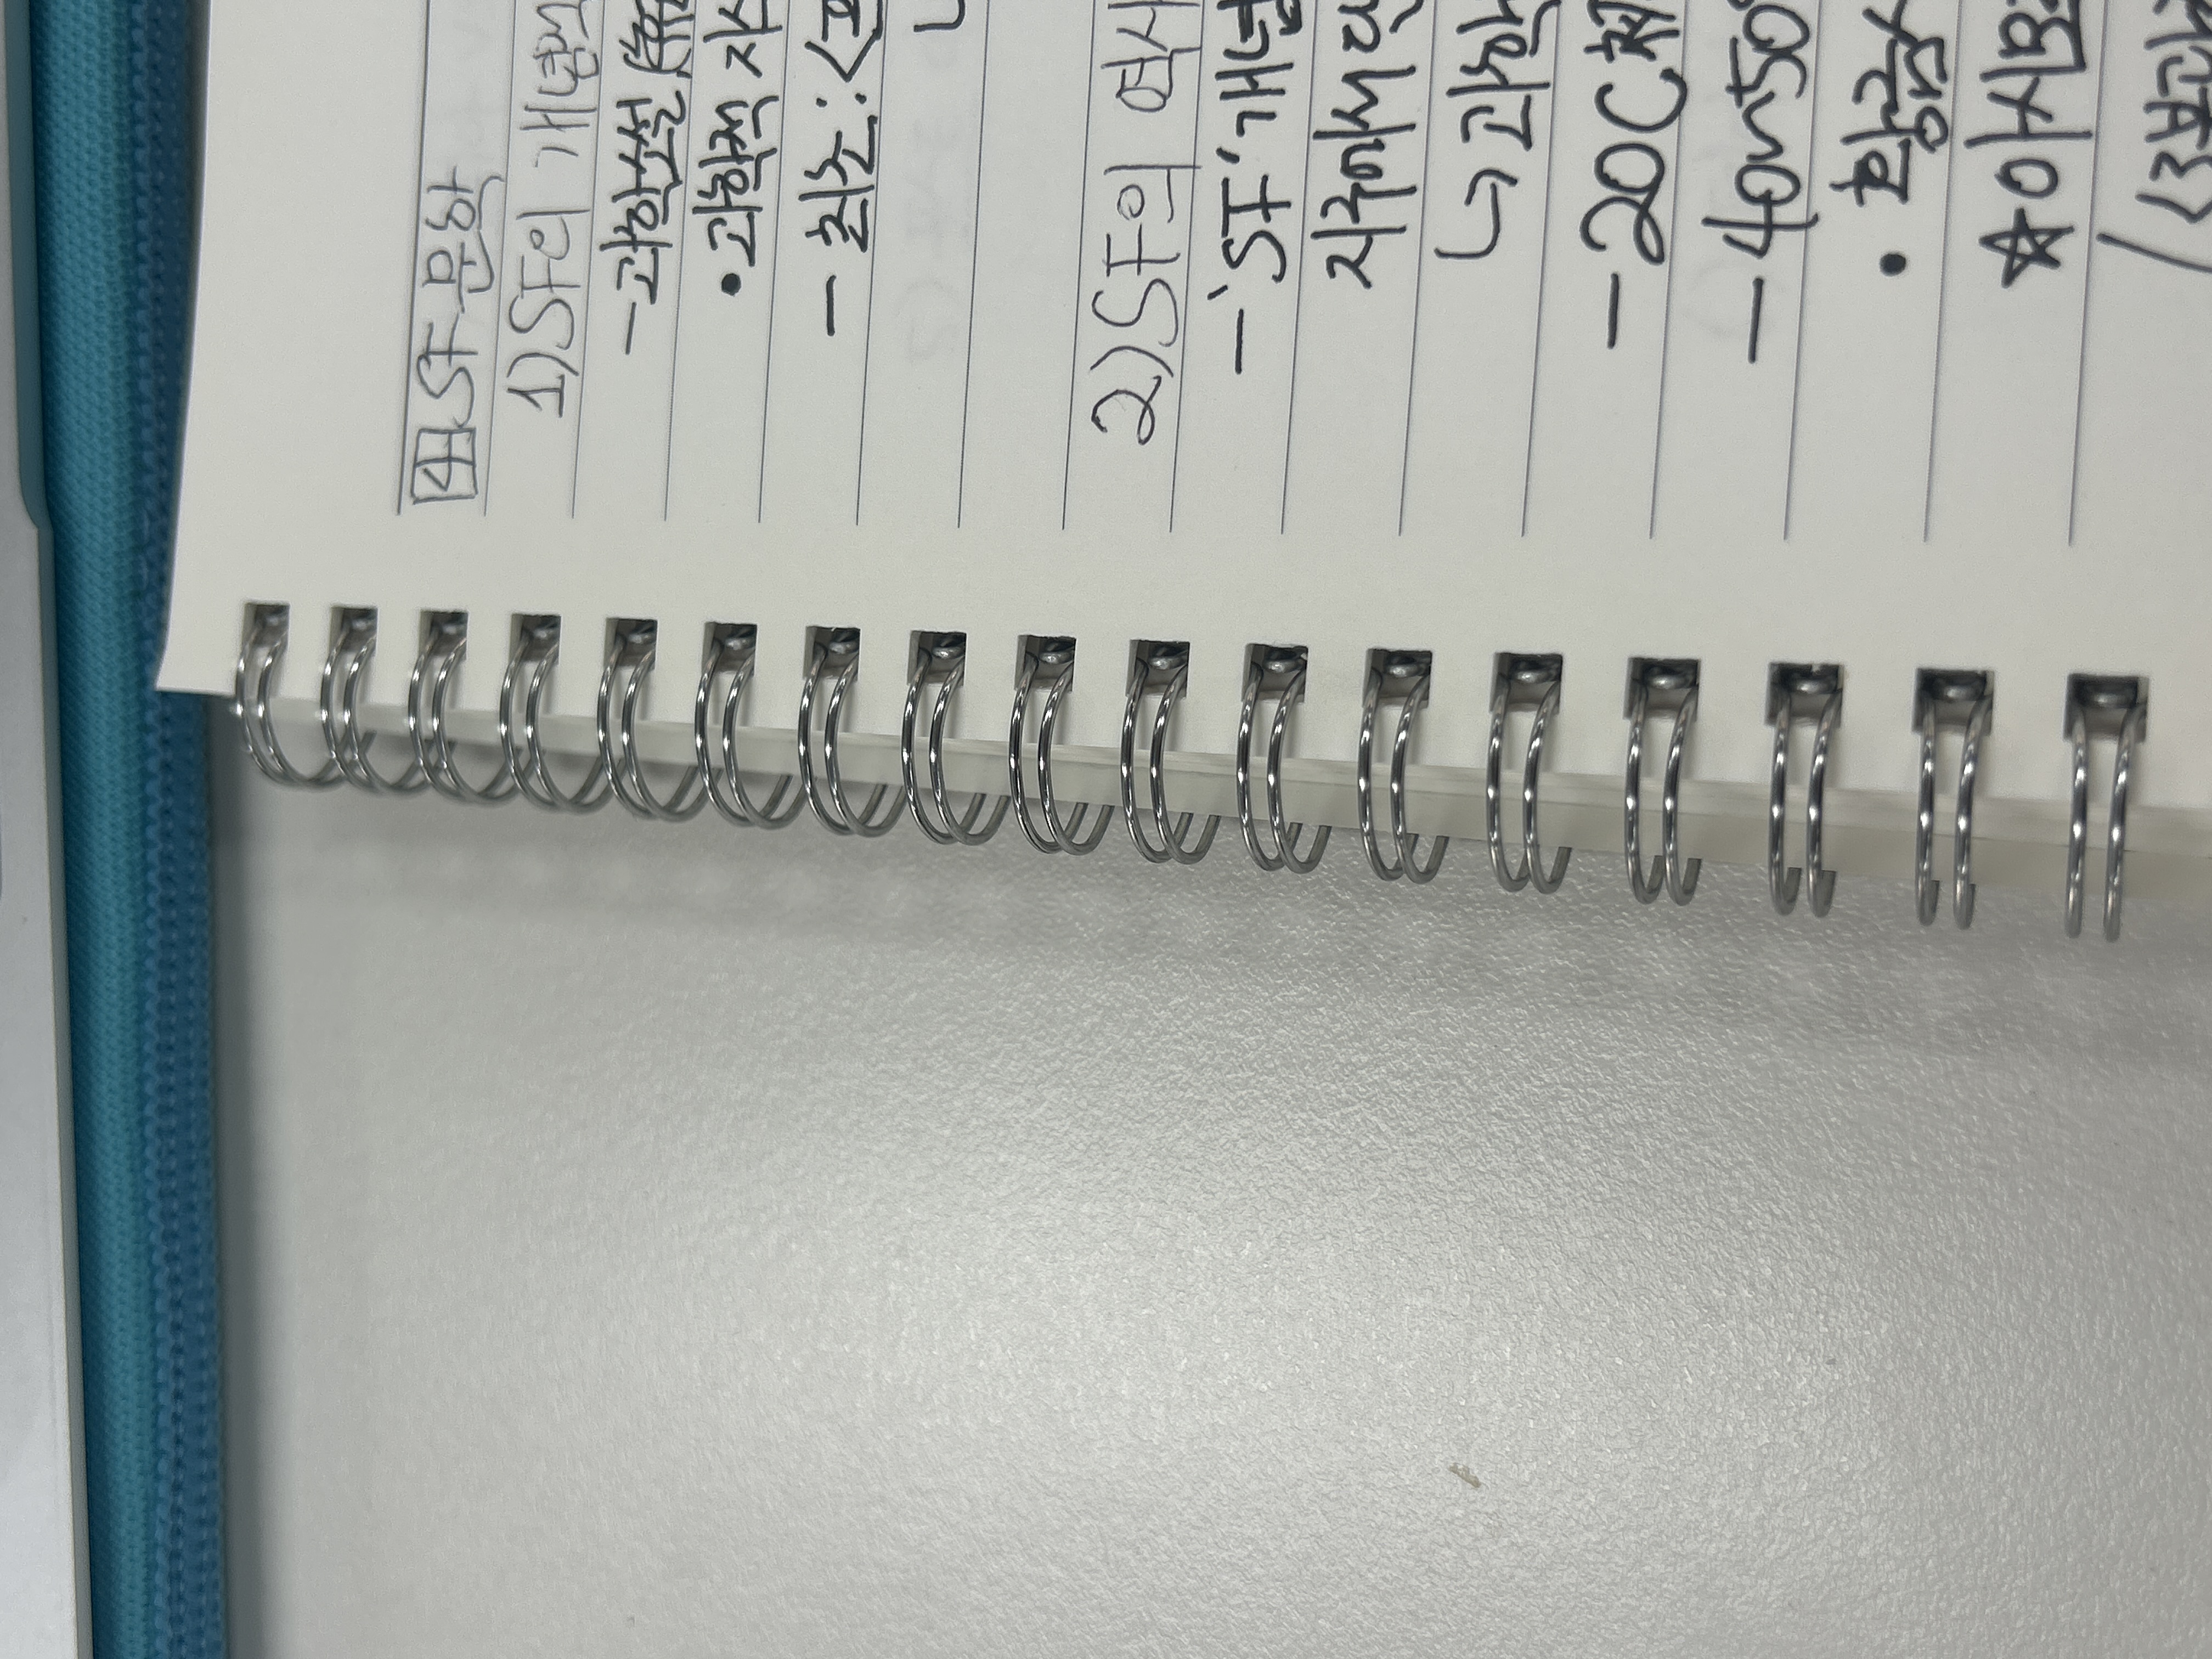 4 SF 문학
1) SF의 개념
- 과학소설,
• 과학적 지식
- 최초: <프
2) SF의 역사
- 'SF' 개념
지구에서 단
↳ 과학
- 20C 初
- 40~50
• 황금시
☆ 아시모
<3부